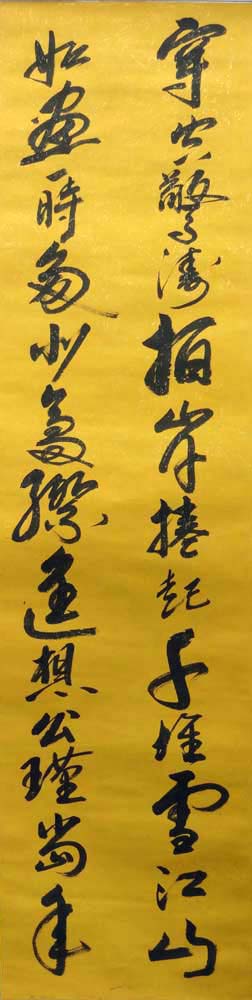 穿空驚濤拍岸捲起千堆雪江山
如畫一時多少豪傑遙想公瑾當年